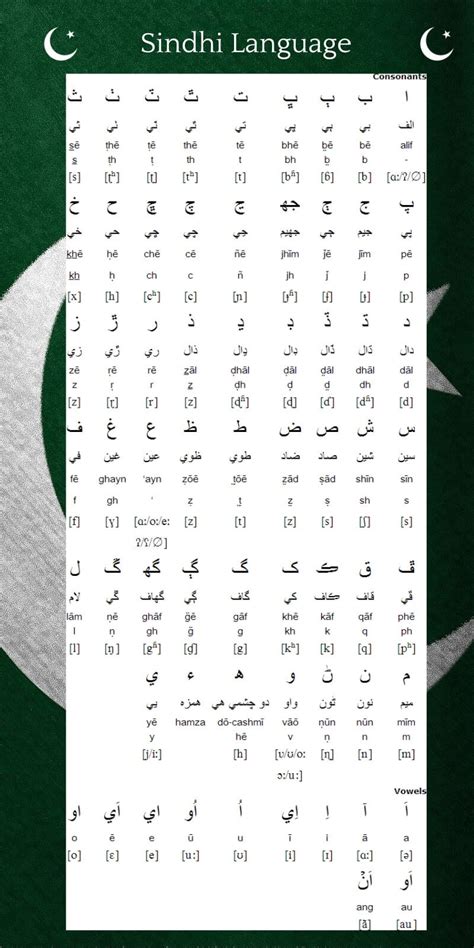 Sindhi Language
Consonants
ا ب ٻ ڀ ت ٿ ٽ ٺ ث
الف بي ٻي ڀي تي ٿي ٽي ٺي ثي
s̱ē ṭhē ṭē thē tē bhē ḇē bē alif
s̱ ṭh ṭ th t bh ḇ b -
[s] [ʈʰ] [ʈ] [tʰ] [t] [bʱ] [ɓ] [b] [ɑː/ʔ/∅]
پ ج ڄ جھ ڃ چ ڇ ح خ
پي جيم ڄي جھيم ڃي چي ڇي حي خي
khē ḥē chē cē ñē jhīm j̈ē jīm pē
kh ḥ ch c ñ jh j̈ j p
[x] [h] [cʰ] [c] [ɲ] [ɟʱ] [ʄ] [ɟ] [p]
د ڌ ڏ ڊ ڍ ذ ر ڙ ز
دال ڌال ڏال ڊال ڍال ذال ري ڙي زي
zē ṛē rē ẕāl ḍhāl ḍāl d̤āl dhāl dāl
z ṛ r ẕ ḍh ḍ d̤ dh d
[z] [ɽ] [r] [z] [ɖʱ] [ɖ] [ɗ] [dʱ] [d]
س ش ص ض ط ظ ع غ ف
سين شين صاد ضاد طوي ظوي عين غين في
fē ghayn ‘ayn ẓōē t̤ōē ẓād ṣād shīn sīn
f gh ‘ ẓ t̤ ẓ ṣ sh s
[f] [ɣ] [ɑː/oː/eː [z] [t] [z] [s] [ʃ] [s]
ʔ/ʕ/∅]
ڦ ق ڪ ک گ ڳ گھ ڱ ل
ڦي قاف ڪاف کي گاف ڳي گھاف ڱي لام
lām ṉē ghāf g̈ē gāf khē kāf qāf phē
l ṉ gh g̈ g kh k q ph
[l] [ŋ] [gʱ] [ɠ] [g] [kʰ] [k] [q] [pʰ]
م ن ڻ و ھ ء ي
ميم نون ڻون واو دو چشمي هي همزه يي
yē hamza dō-cashmī vāō ṇūn nūn mīm
y hē v ṇ n m
[j/iː] [h] [ʋ/ʊ/oː [ɳ] [n] [m]
ɔː/uː]
Vowels
اَ آ اِ اِي اُ اُو اي اَي او
o ē e ū u ī i ā a
[o] [ɛ] [e] [uː] [ʊ] [i] [ɪ] [ɑː] [ə]
اَو اَنْ
ang au
[ã] [au]